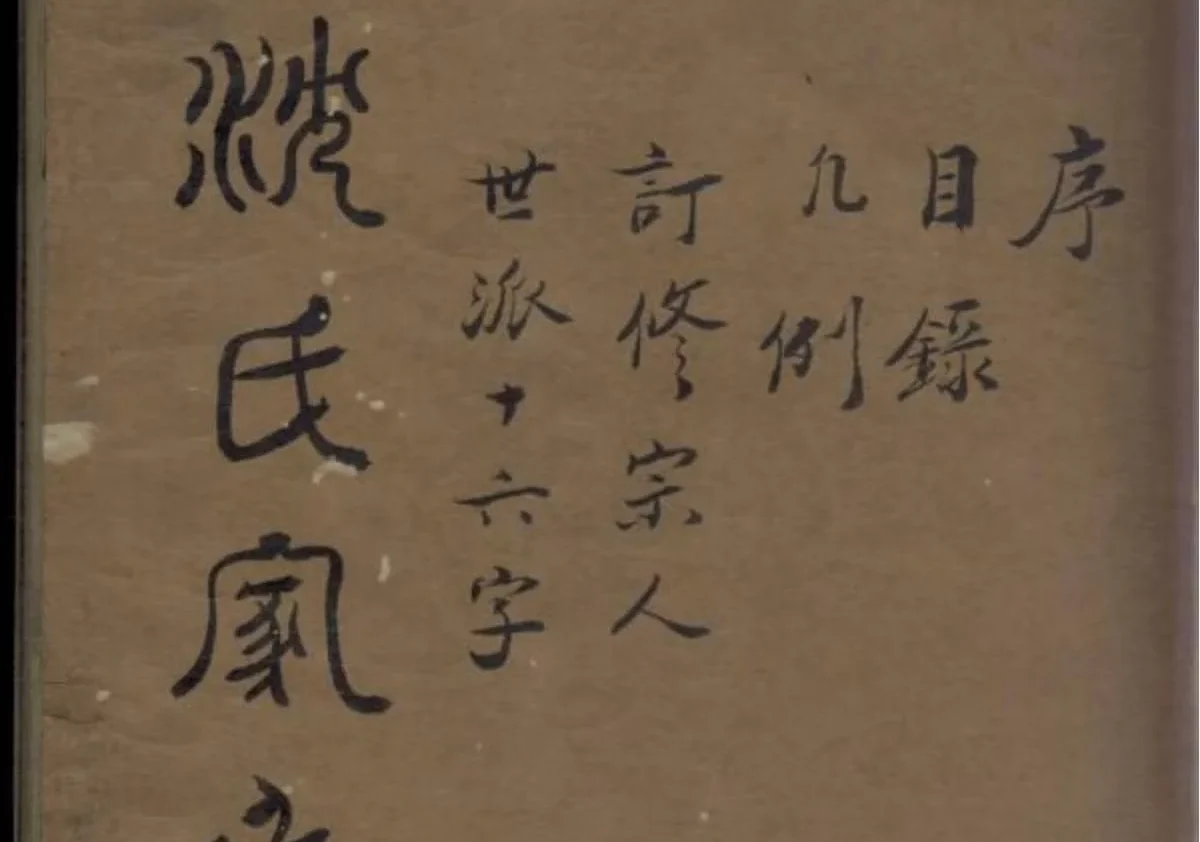 序
目錄
凡例
訂修宗人
世派十六字
氏家